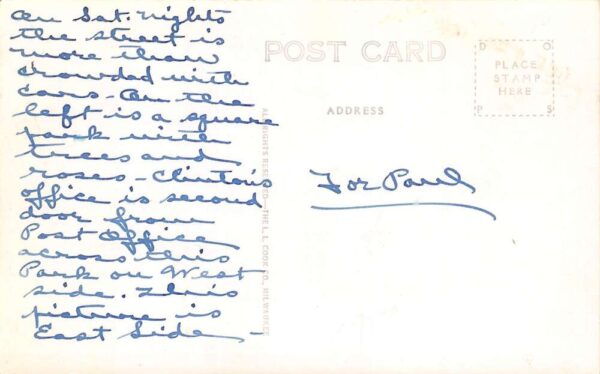 On Sat. nights
the street is
more than
crowded with
cars - On the
left is a square
park with
trees and
roses - Clinton's
office is second
door from
Post Office
across this
Park on West
side. This
picture is
East Side -
POST CARD
D O
PLACE
STAMP
HERE
P S
ADDRESS
For Paul
ALL RIGHTS RESERVED - THE L. L. COOK CO., MILWAUKEE